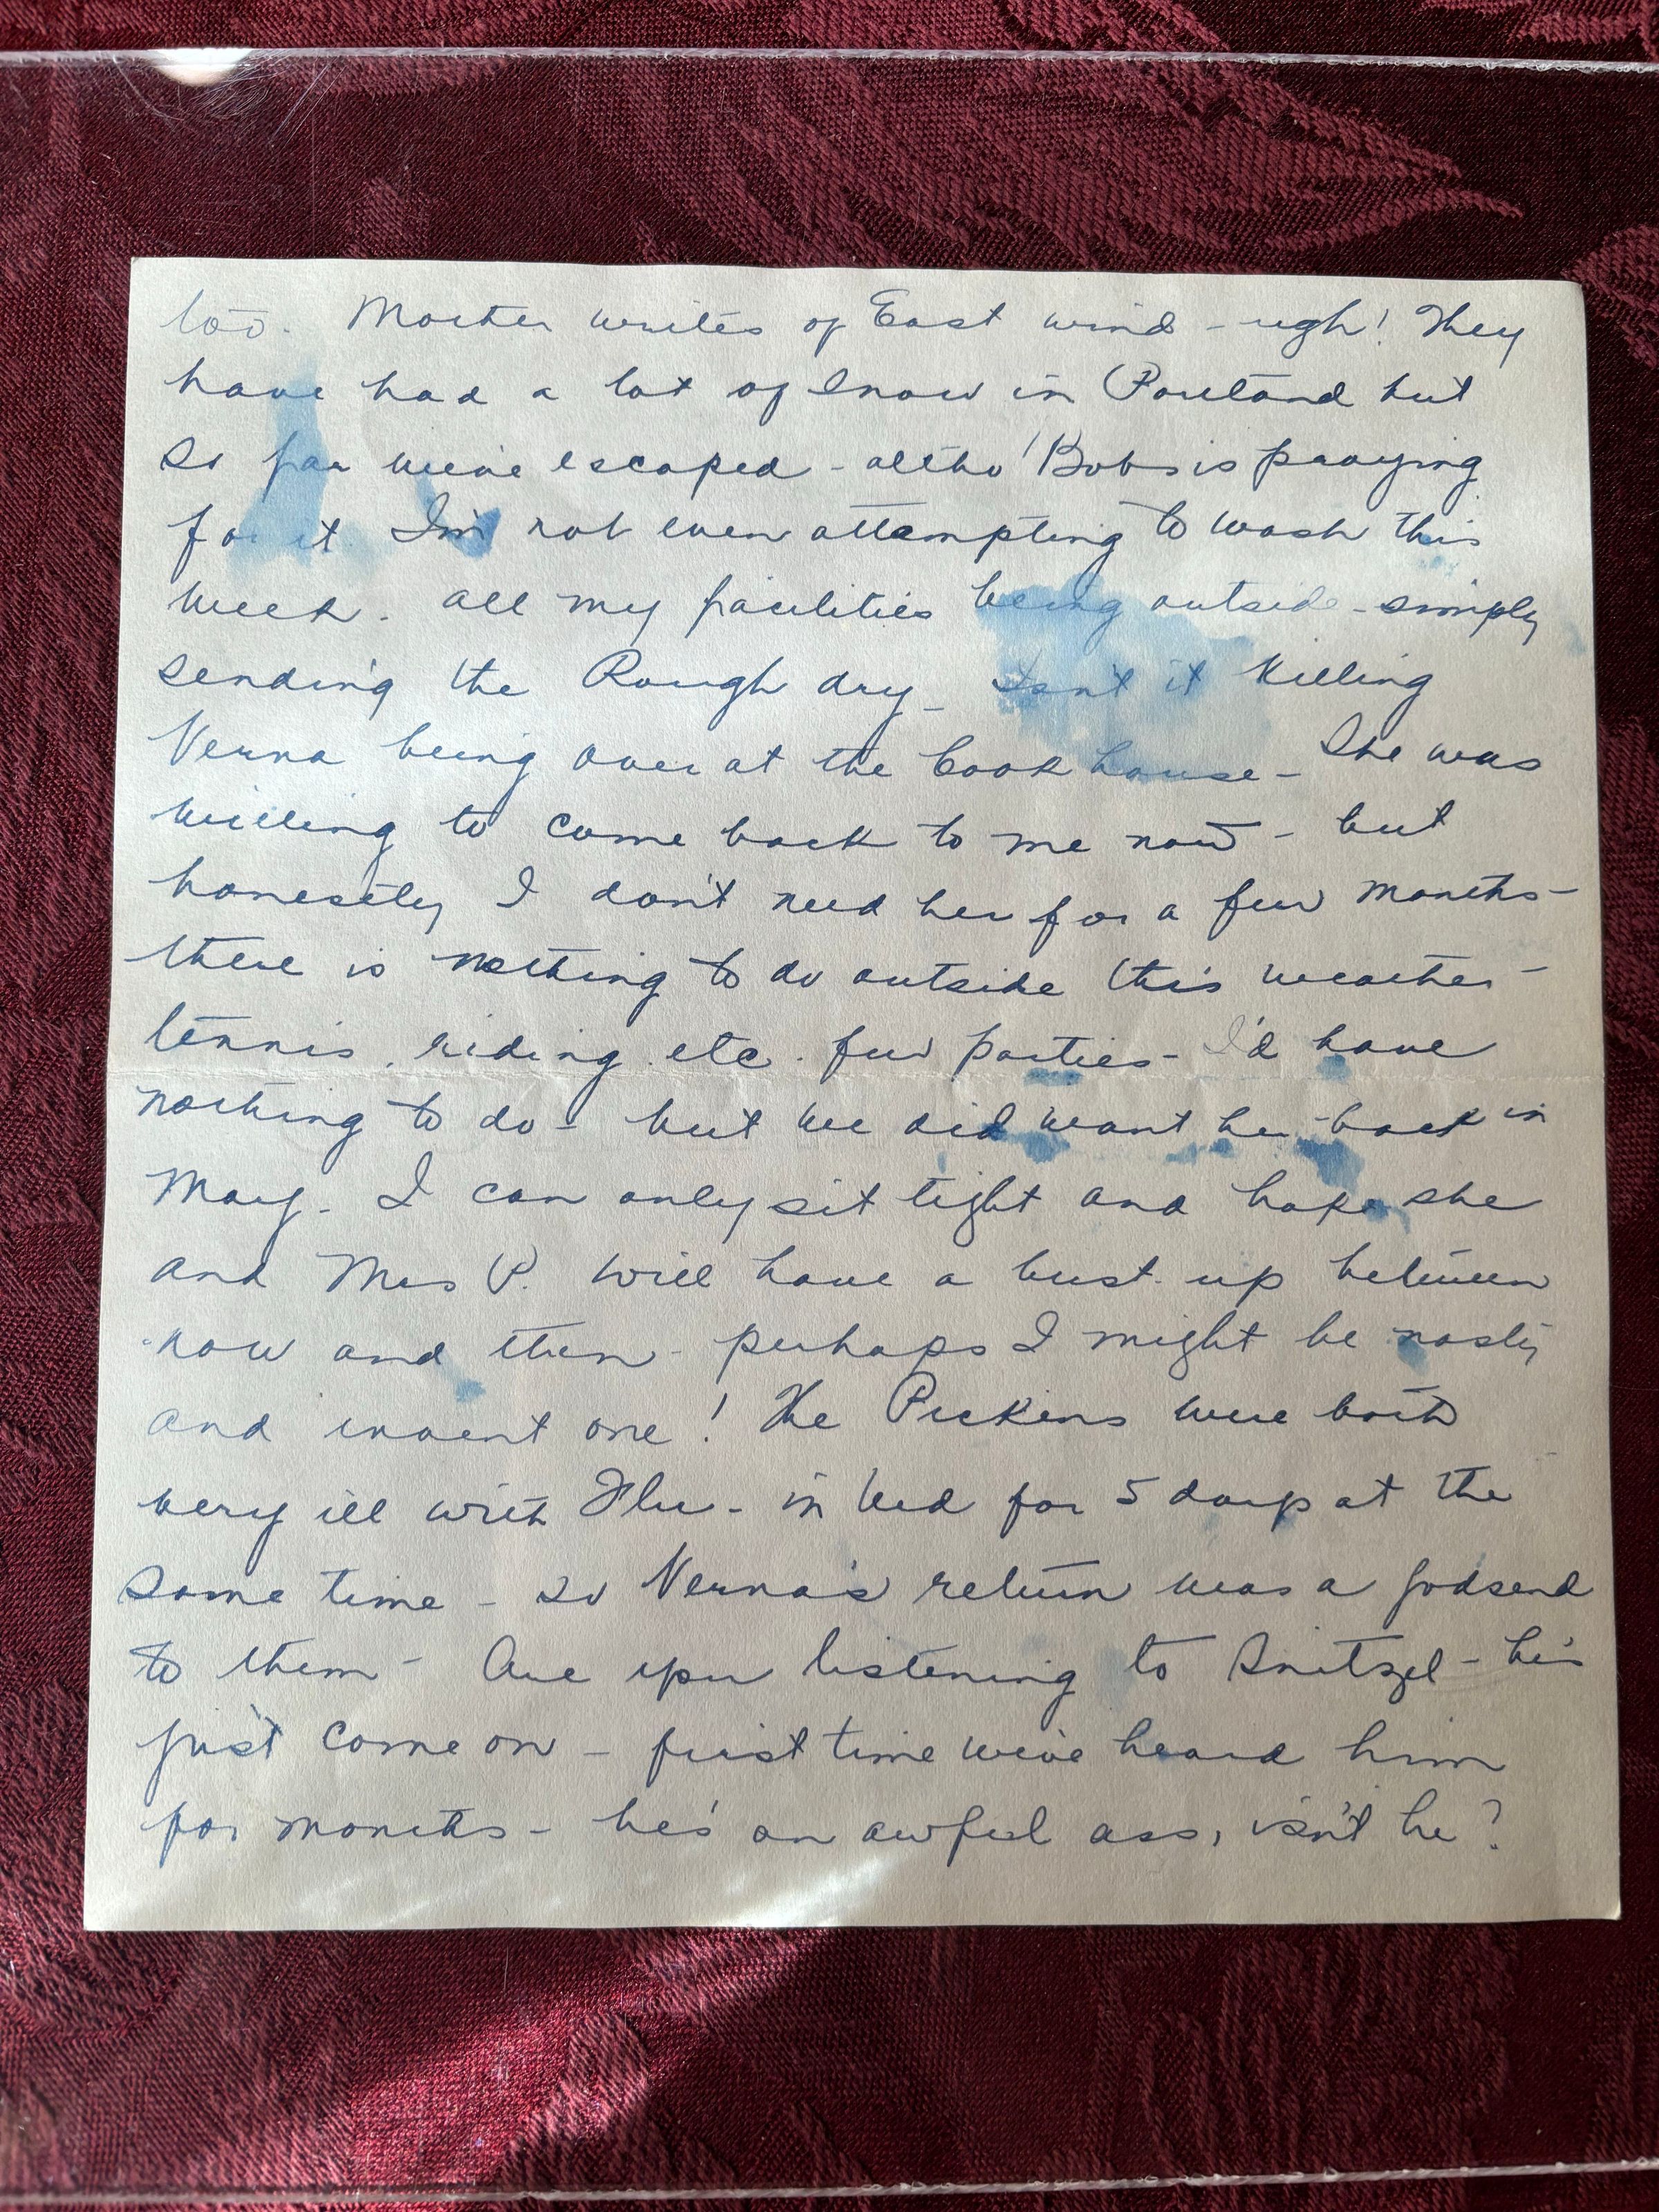 too. Mother writes of East wind - ugh! They
have had a lot of snow in Portland but
so far we've escaped - altho' Bobs is praying
for it. I'm not even attempting to wash this
week. All my facilities being outside - simply
sending the Rough dry - Isn't it killing
Verna being over at the Cook house - She was
willing to come back to me now - but
honestly I don't need her for a few months -
there is nothing to do outside this weather -
tennis, riding etc. few parties - I'd have
nothing to do - but we did want her back in
May. I can only sit tight and hope she
and Mrs P. will have a bust up between
now and then - perhaps I might be nasty
and invent one! The Pickens were both
very ill with Flu - in bed for 5 days at the
same time - so Verna's return was a godsend
to them - Are you listening to Snitzel - he's
just come on - first time we've heard him
for months - he's an awful ass, isn't he?